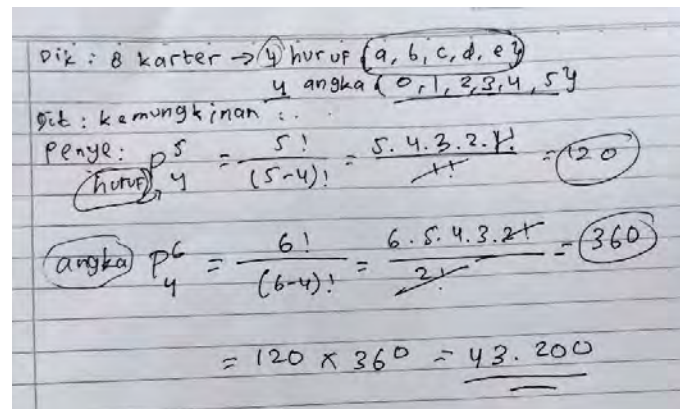 Dik : 8 karter → 4 huruf {a, b, c, d, e}
4 angka {0, 1, 2, 3, 4, 5}
Dit : kemungkinan : . .
Penye : P⁵₄ = 5! / (5-4)! = 5. 4. 3. 2. 1! / 1! = 120
huruf
angka P⁶₄ = 6! / (6-4)! = 6. 5. 4. 3. 2! / 2! = 360
= 120 x 360 = 43. 200